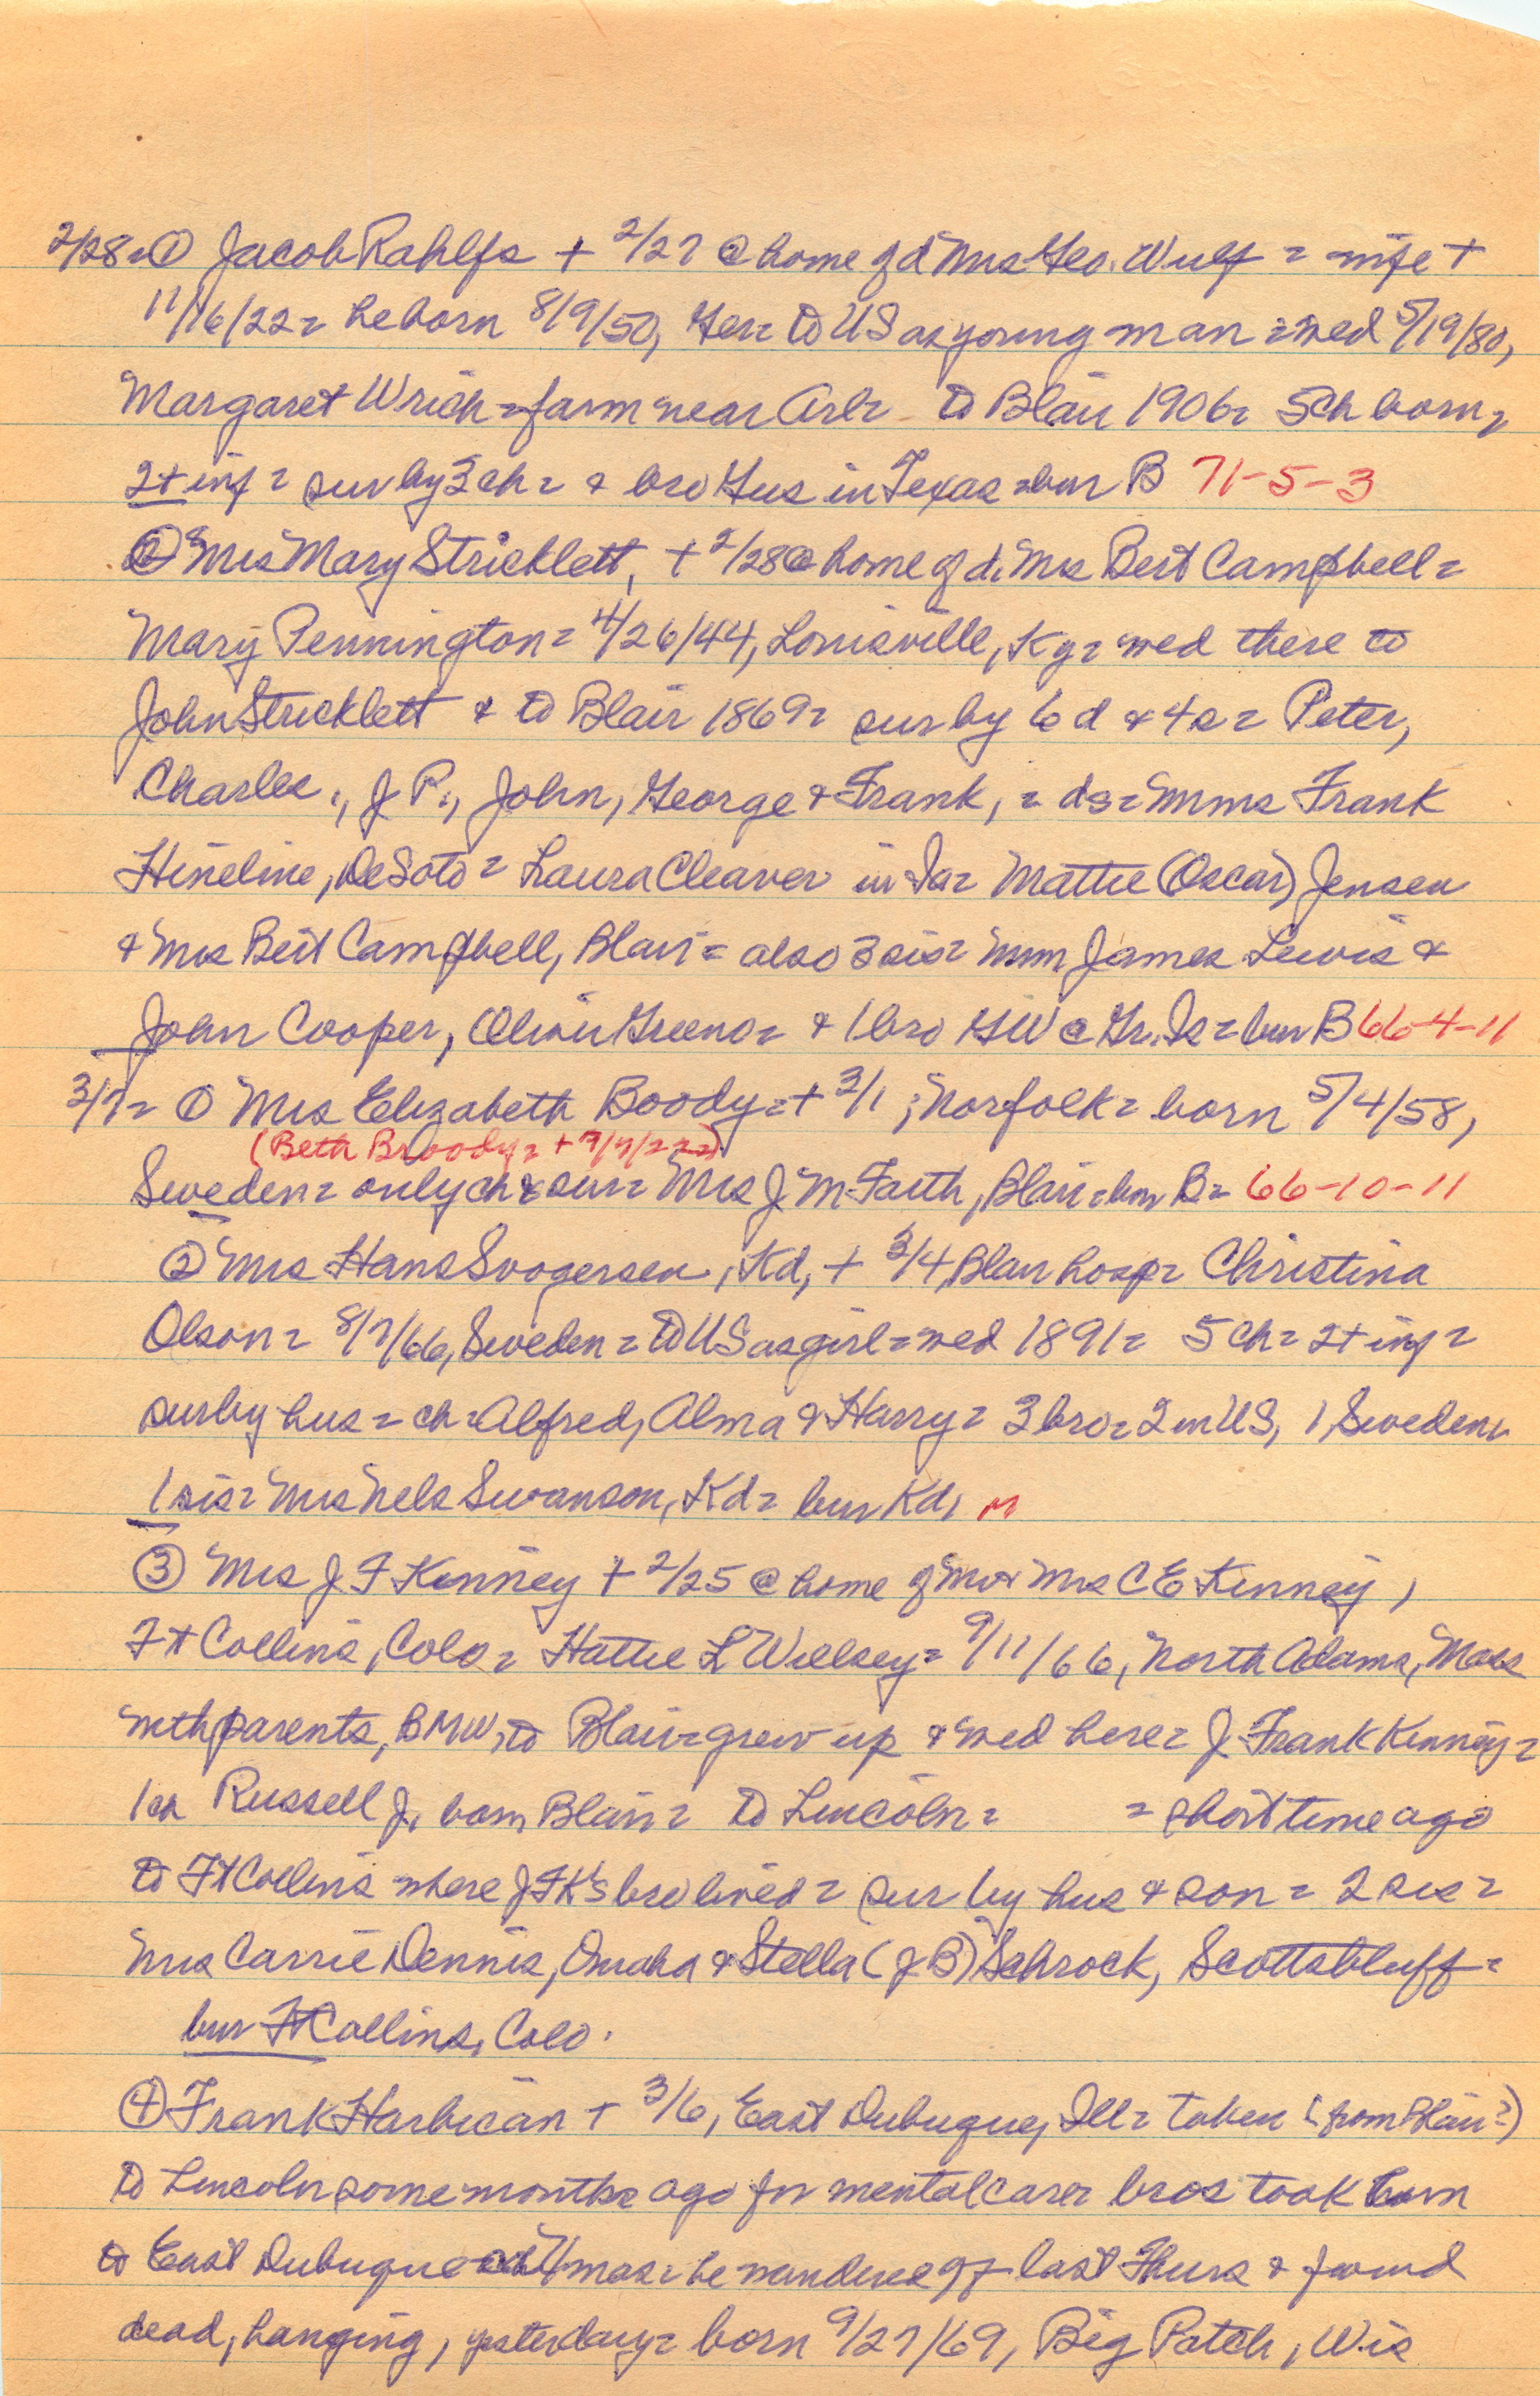 2/28 = ① Jacob Rahlfs + 2/27 @ home of d Mrs Geo. Wulf = wife +
11/16/22 = he born 8/9/50, Ger = to US as young man = wed 5/19/80,
Margaret Wrich = farm near Arl = to Blair 1906 = 5 ch born,
2 + inf = sur by 3 ch = & bro Gus in Texas = bur B 71-5-3
② Mrs Mary Stricklett, + 2/28 @ home of d, Mrs Bert Campbell =
Mary Pennington = 4/26/44, Louisville, Ky = wed there to
John Stricklett & to Blair 1869 = sur by 6 d & 4 s = Peter,
Charles, J P, John, George & Frank, = ds = Mms Frank
Hineline, DeSoto = Laura Cleaver in Ia = Mattie (Oscar) Jensen
& Mrs Bert Campbell, Blair = also 3 sis = Mmm James Lewis &
John Cooper, Oliver Greeno = & 1 bro GW @ Gr. Is = bur B 66-4-11
3/7 = ① Mrs Elizabeth Boody = + 3/1, Norfolk = born 5/4/58,
(Beth Broody =
Sweden = only ch & sur = Mrs J M Faith, Blair = bur B = 66-10-11
② Mrs Hans Svogersen, Kd, + 3/4, Blair hosp = Christina
Olson = 8/7/66, Sweden = to US as girl = wed 1891 = 5 ch = 2 + inf =
sur by hus = ch = Alfred, Alma & Harry = 3 bro = 2 in US, 1, Sweden,
1 sis = Mrs Nels Swanson, Kd = bur Kd,
③ Mrs J F Kenney + 2/25 @ home of Mr & Mrs C E Kenney,
Ft Collins, Colo = Hattie L Willsey = 9/11/66, North Adams, Mass
with parents, BMW, to Blair = grew up & wed here = J. Frank Kenney =
1 ch Russell J, born Blair = to Lincoln = = short time ago
to Ft Collins where JFK's bro lived = sur by hus & son = 2 sis =
Mrs Carrie Dennis, Omaha & Stella (J B) Schrock, Scottsbluff =
bur Ft Collins, Colo.
④ Frank Harbican + 3/6, East Dubuque, Ill = taken (from Blair?)
to Lincoln some months ago for mental care = bros took him
to East Dubuque mas = he wandered off last Thurs & found
dead, hanging, yesterday = born 9/27/69, Big Patch, Wis